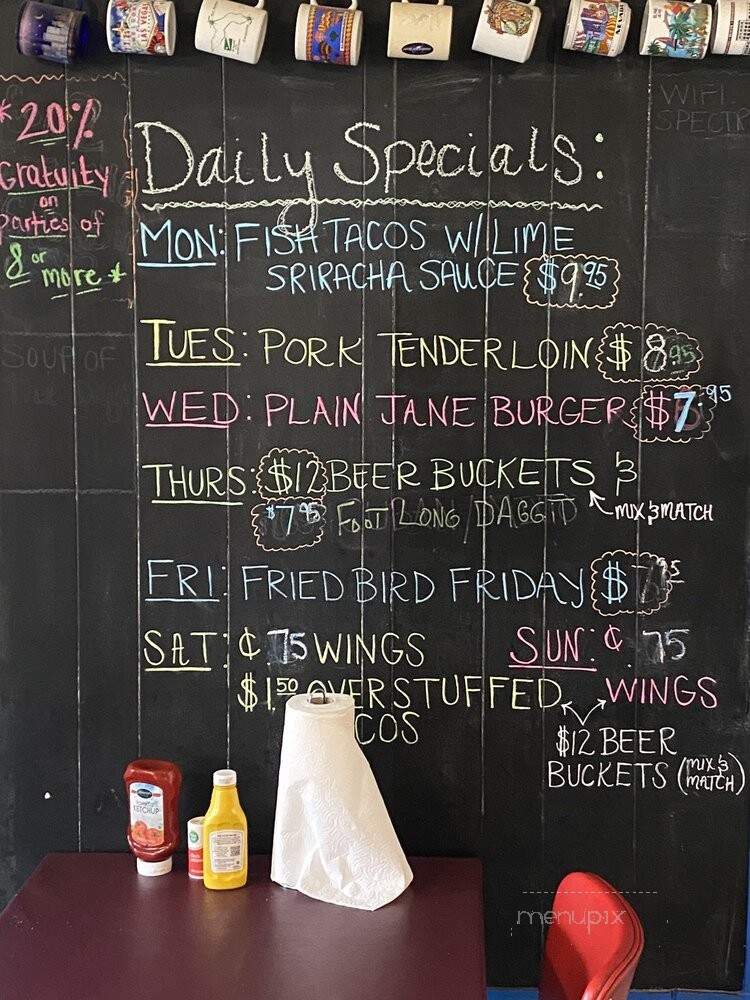 *20%
Gratuity
on
parties of
8 or
more*
WIFI:
SOUP OF
Daily Specials:
MON: FISH TACOS W/ LIME
SRIRACHA SAUCE $9.95
TUES: PORK TENDERLOIN $8.95
WED: PLAIN JANE BURGER $7.95
THURS: $12 BEER BUCKETS &
MIX & MATCH
$7.95 FOOT LONG/DAGGTD
FRI: FRIED BIRD FRIDAY $7
SAT: ¢.75 WINGS
$1.50 OVERSTUFFED
COS
SUN: ¢.75
WINGS
$12 BEER
BUCKETS (MIX &
MATCH)
KETCHUP
menupix